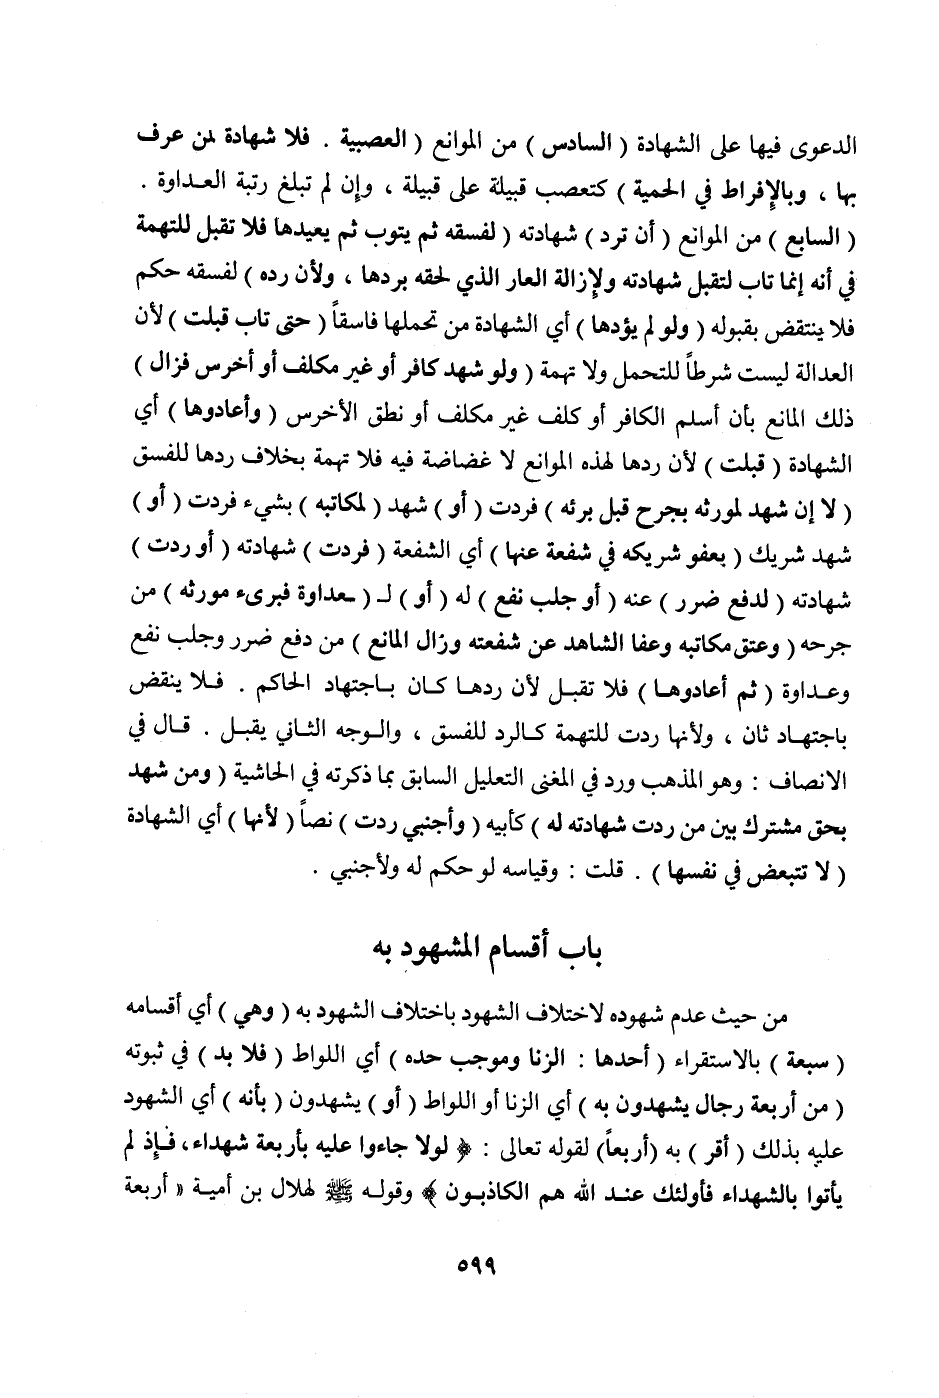 الدعوى فيها على الشهادة ( السادس ) من الموانع ( العصبية . فلا شهادة لمن عرف
بها ، وبالإفراط في الحمية ) كتعصب قبيلة على قبيلة ، وإن لم تبلغ رتبة العداوة .
( السابع ) من الموانع ( أن ترد ) شهادته ( لفسقه ثم يتوب ثم يعيدها فلا تقبل للتهمة
في أنه إنما تاب لتقبل شهادته ولإزالة العار الذي لحقه بردها ، ولأن رده ) لفسقه حكم
فلا ينتقض بقبوله ( ولو لم يؤدها ) أي الشهادة من تحملها فاسقاً ( حتى تاب قبلت ) لأن
العدالة ليست شرطاً للتحمل ولا تهمة ( ولو شهد كافر أو غير مكلف أو أخرس فزال )
ذلك المانع بأن أسلم الكافر أو كلف غير مكلف أو نطق الأخرس ( وأعادوها ) أي
الشهادة ( قبلت ) لأن ردها لهذه الموانع لا غضاضة فيه فلا تهمة بخلاف ردها للفسق
( لا إن شهد لمورثه بجرح قبل برئه ) فردت ( أو ) شهد ( لمكاتبه ) بشيء فردت ( أو )
شهد شريك ( بعفو شريكه في شفعة عنها ) أي الشفعة ( فردت ) شهادته ( أو ردت )
شهادته ( لدفع ضرر ) عنه ( أو جلب نفع ) له ( أو ) لـ ( ـعداوة فبرىء مورثه ) من
جرحه ( وعتق مكاتبه وعفا الشاهد عن شفعته وزال المانع ) من دفع ضرر وجلب نفع
وعداوة ( ثم أعادوها ) فلا تقبل لأن ردها كان باجتهاد الحاكم . فلا ينقض
باجتهاد ثان ، ولأنها ردت للتهمة كالرد للفسق ، والوجه الثاني يقبل . قال في
الانصاف : وهو المذهب ورد في المغنى التعليل السابق بما ذكرته في الحاشية ( ومن شهد
بحق مشترك بين من ردت شهادته له ) كأبيه ( وأجنبي ردت ) نصاً ( لأنها ) أي الشهادة
( لا تتبعض في نفسها ) . قلت : وقياسه لو حكم له ولأجنبي .
باب أقسام المشهود به
من حيث عدم شهوده لاختلاف الشهود باختلاف الشهود به ( وهي ) أي أقسامه
( سبعة ) بالاستقراء ( أحدها : الزنا وموجب حده ) أي اللواط ( فلا بد ) في ثبوته
( من أربعة رجال يشهدون به ) أي الزنا أو اللواط ( أو ) يشهدون ( بأنه ) أي الشهود
عليه بذلك ( أقر ) به (أربعاً) لقوله تعالى : ﴿ لولا جاءوا عليه بأربعة شهداء، فإذ لم
يأتوا بالشهداء فأولئك عند الله هم الكاذبون ﴾ وقوله ﷺ لهلال بن أمية « أربعة
٥٩٩